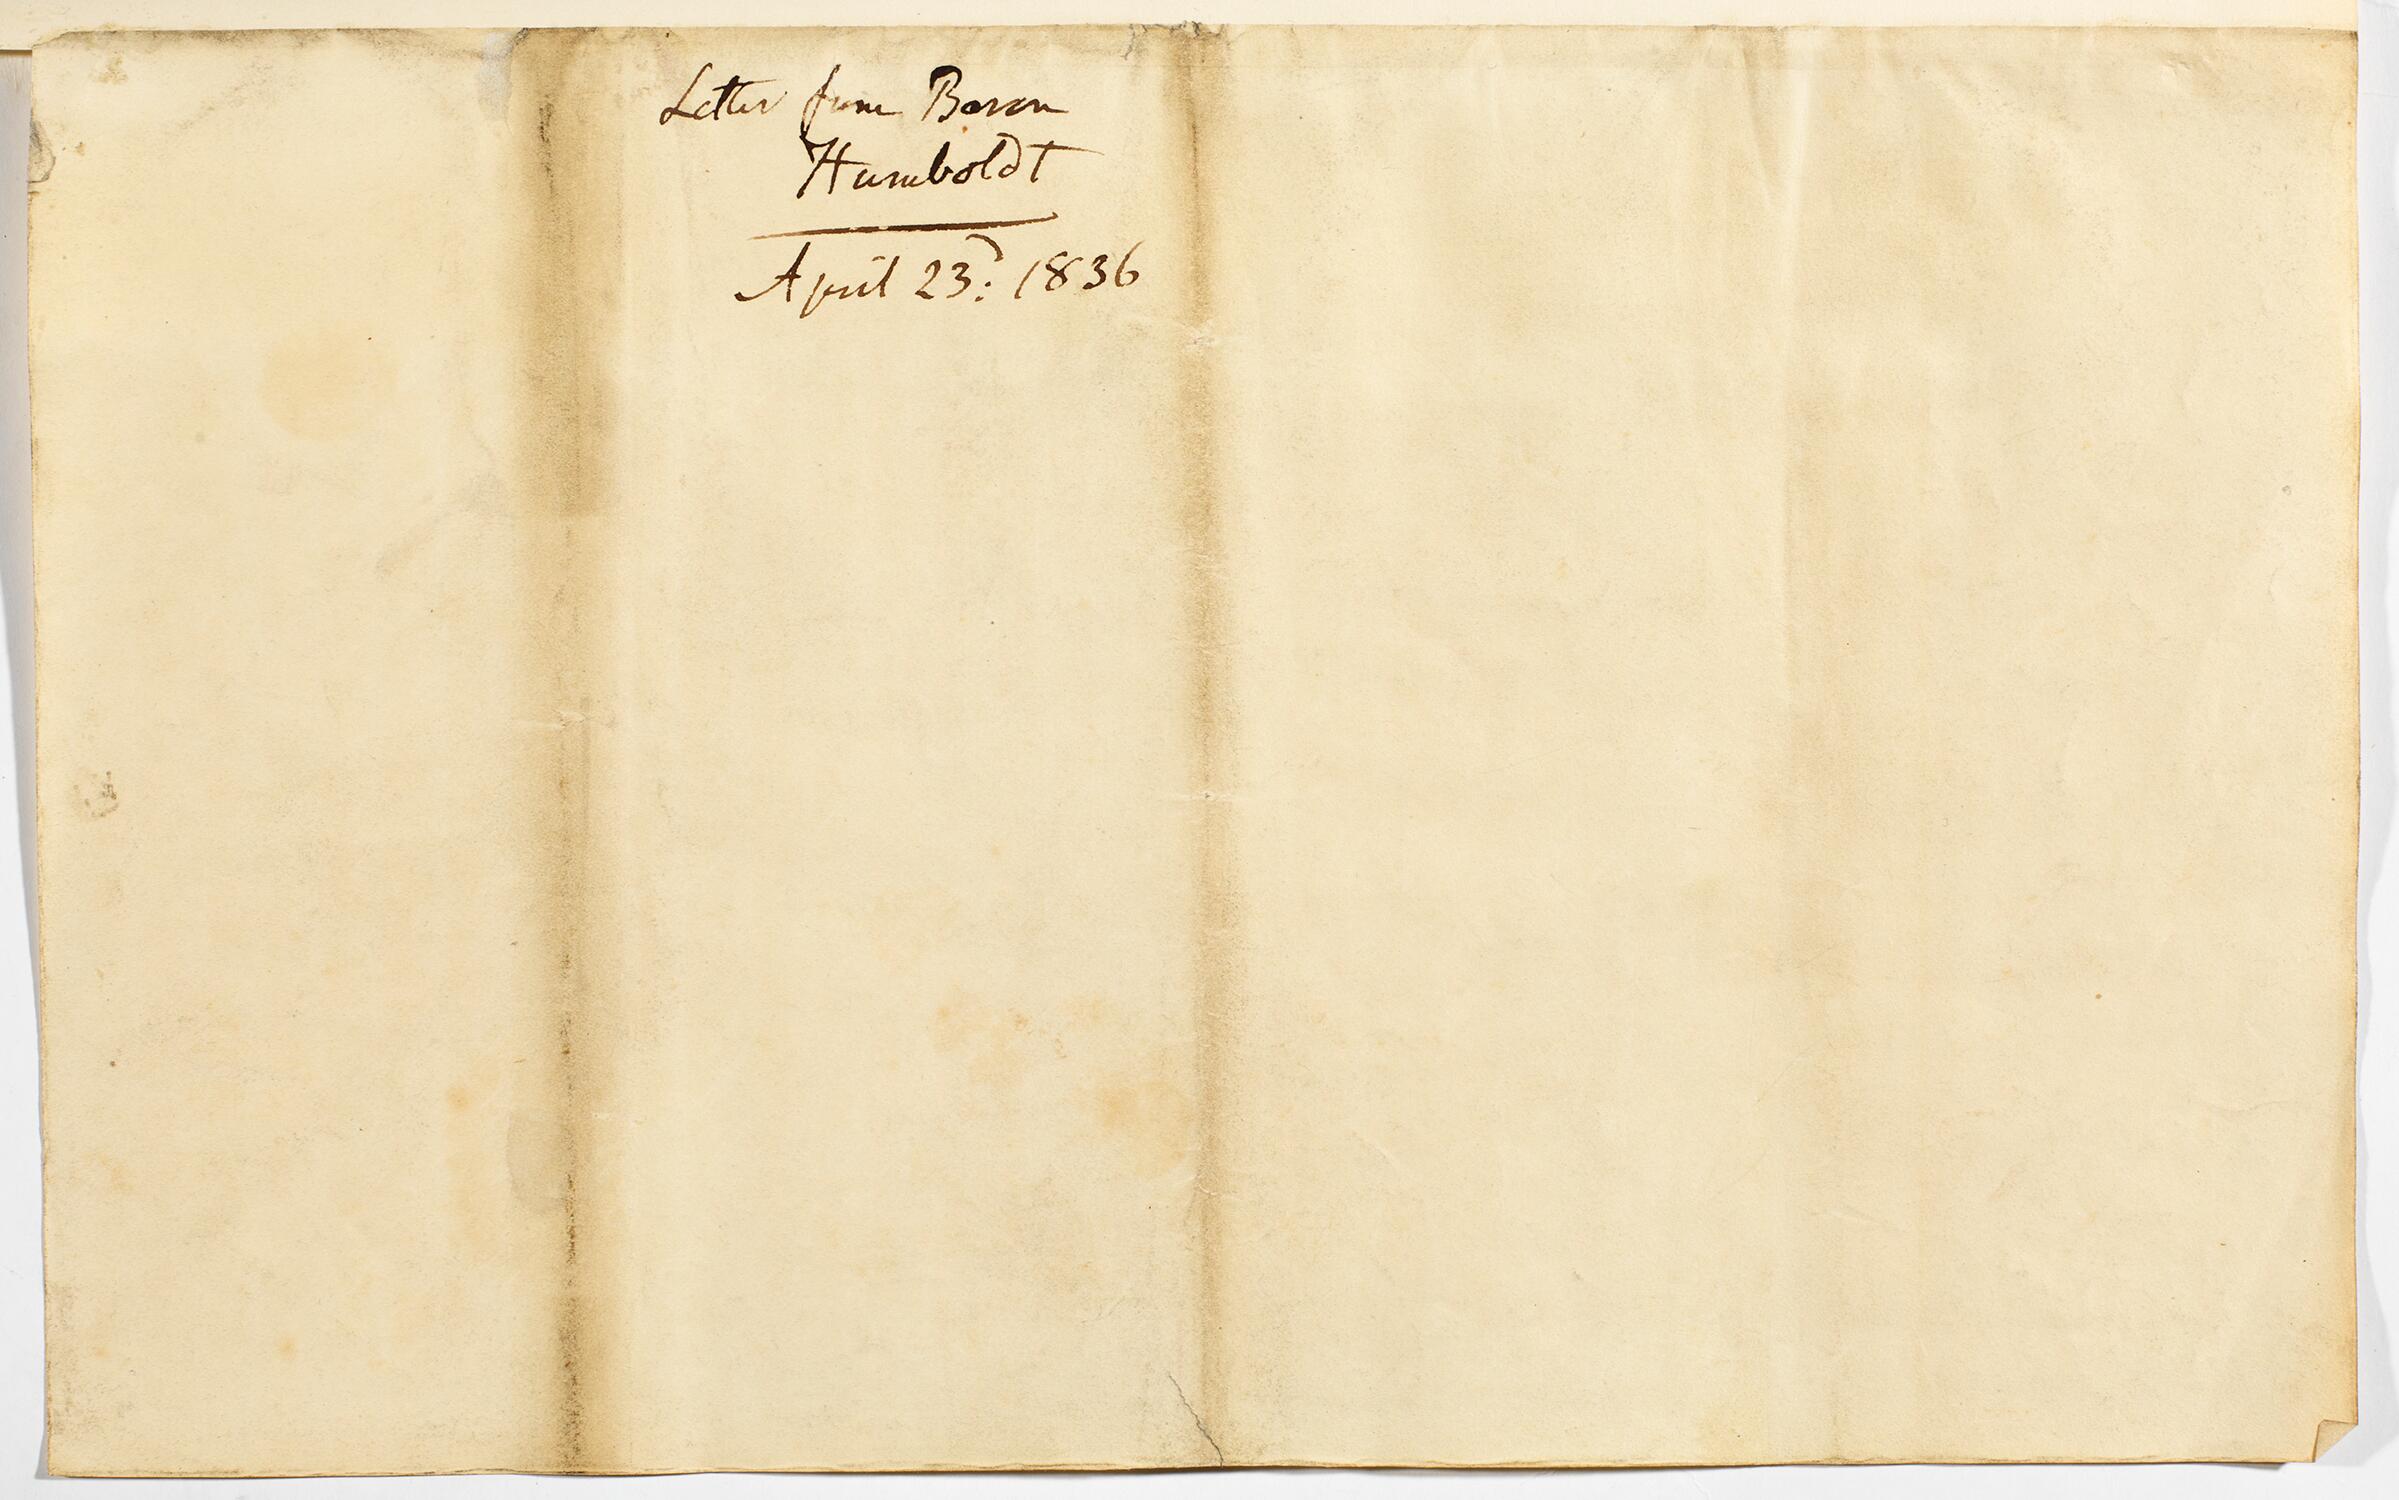 Letter from Baron
Humboldt
April 23d: 1836